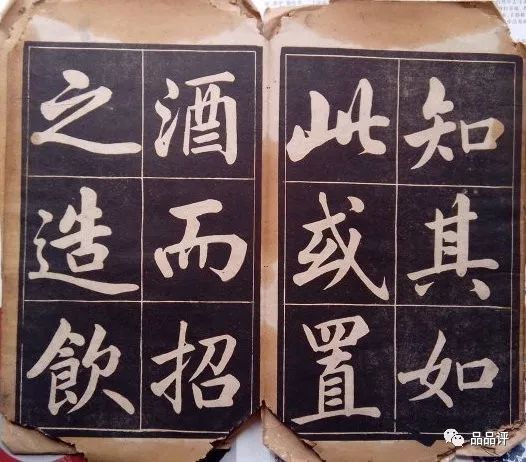 知其如
此或置
酒而招
之造飲
品品评